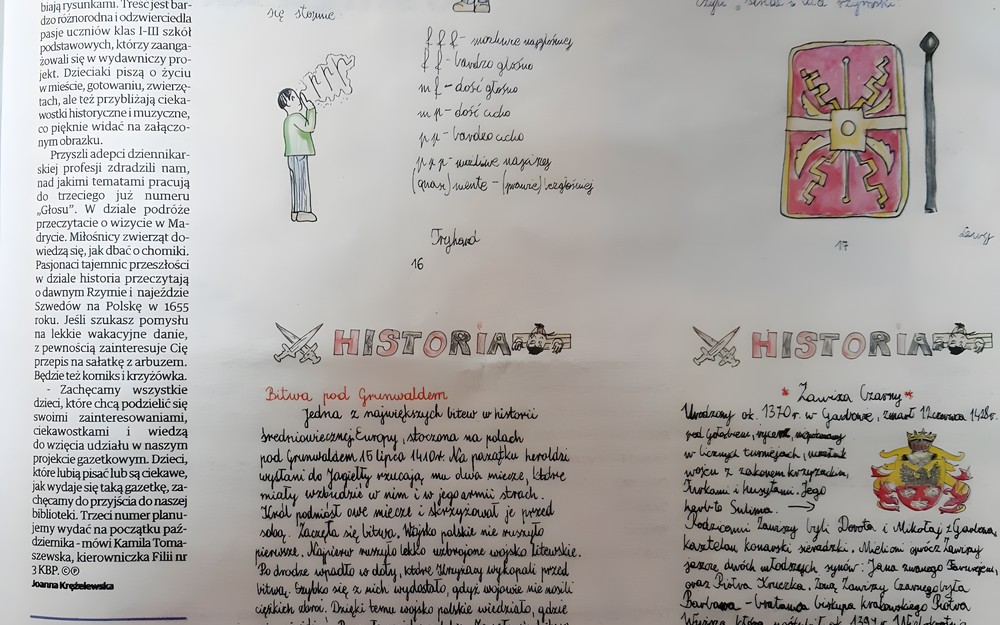 biają rysunkami. Treść jest bar-
dzo różnorodna i odzwierciedla
pasje uczniów klas I-III szkół
podstawowych, którzy zaanga-
żowali się w wydawniczy pro-
jekt. Dzieciaki piszą o życiu
w mieście, gotowaniu, zwierzę-
tach, ale też przybliżają cieka-
wostki historyczne i muzyczne,
co pięknie widać na załączo-
nym obrazku.
Przyszli adepci dziennikar-
skiej profesji zdradzili nam,
nad jakimi tematami pracują
do trzeciego już numeru
„Głosu”. W dziale podróże
przeczytacie o wizycie w Ma-
drycie. Miłośnicy zwierząt do-
wiedzą się, jak dbać o chomiki.
Pasjonaci tajemnic przeszłości
w dziale historia przeczytają
o dawnym Rzymie i najeździe
Szwedów na Polskę w 1655
roku. Jeśli szukasz pomysłu
na lekkie wakacyjne danie,
z pewnością zainteresuje Cię
przepis na sałatkę z arbuzem.
Będzie też komiks i krzyżówka.
- Zachęcamy wszystkie
dzieci, które chcą podzielić się
swoimi zainteresowaniami,
ciekawostkami i wiedzą
do wzięcia udziału w naszym
projekcie gazetkowym. Dzieci,
które lubią pisać lub są ciekawe,
jak wydaje się taką gazetkę, za-
chęcamy do przyjścia do naszej
biblioteki. Trzeci numer planu-
jemy wydać na początku paź-
dziernika - mówi Kamila Toma-
szewska, kierowniczka Filii nr
3 KBP. ©℗
Joanna Krężelewska
się
f f f - możliwie najgłośniej
f f - bardzo głośno
m f - dość głośno
m p - dość cicho
p p - bardzo cicho
p p p - możliwie najciszej
(quasi) niente - (prawie) bezgłośniej
16
17
HISTORIA
Bitwa pod Grunwaldem
Jedna z największych bitew w historii
średniowiecznej Europy, stoczona na polach
pod Grunwaldem 15 lipca 1410r. Na początku heroldzi
wysłani do Jagiełły rzucają mu dwa miecze, które
miały wzbudzić w nim i w jego armii strach.
Król podniósł owe miecze i skrzyżował je przed
sobą. Zaczęła się bitwa. Wojsko polskie nie ruszyło
pierwsze. Najpierw ruszyło lekko uzbrojone wojsko litewskie.
Po drodze wpadło w doły, które Krzyżacy wykopali przed
bitwą. Szybko się z nich wydostało, gdyż wojowie nie nosili
ciężkich zbroi. Dzięki temu wojsko polskie wiedziało, gdzie
HISTORIA
* Zawisza Czarny *
Urodzony ok. 1370 r. w Garbowie, zmarł 12 czerwca 1428r.
pod Gołubcem, rycerz,
w licznych turniejach, uczestnik
wojen z zakonem krzyżackim,
Turkami i husytami. Jego
herb to Sulima. →
Rodzicami Zawiszy byli Dorota i Mikołaj z Garbowa,
kasztelan konarski sieradzki. Mieli oni oprócz Zawiszy
jeszcze dwóch młodszych synów: Jana zwanego Farurejem,
oraz Piotra Kruczka. Żoną Zawiszy Czarnego była
Barbara - bratanica biskupa krakowskiego Piotra